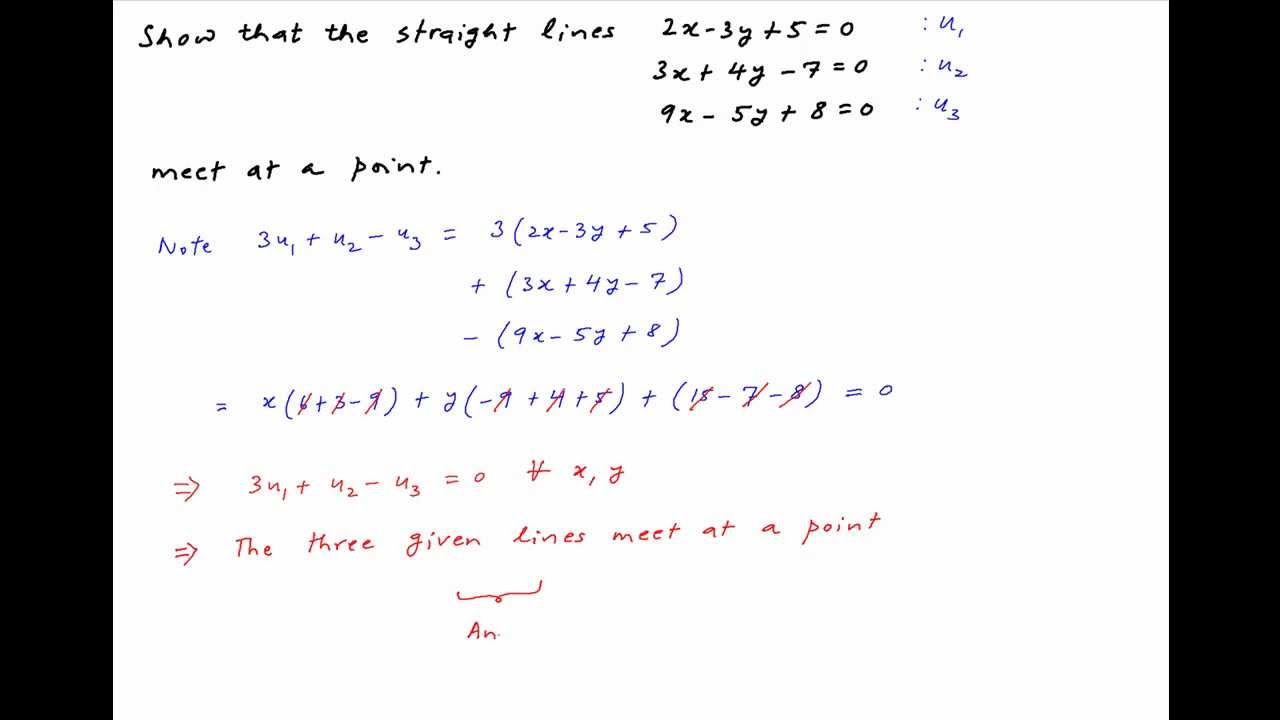 Show that the straight lines 2x-3y+5=0 : u₁
3x+4y-7=0 : u₂
9x-5y+8=0 : u₃
meet at a point.
Note 3u₁+u₂-u₃ = 3(2x-3y+5)
+ (3x+4y-7)
- (9x-5y+8)
= x(6+3-9) + y(-9+4+5) + (15-7-8) = 0
⇒ 3u₁+u₂-u₃ = 0 ∀ x, y
⇒ The three given lines meet at a point
An.